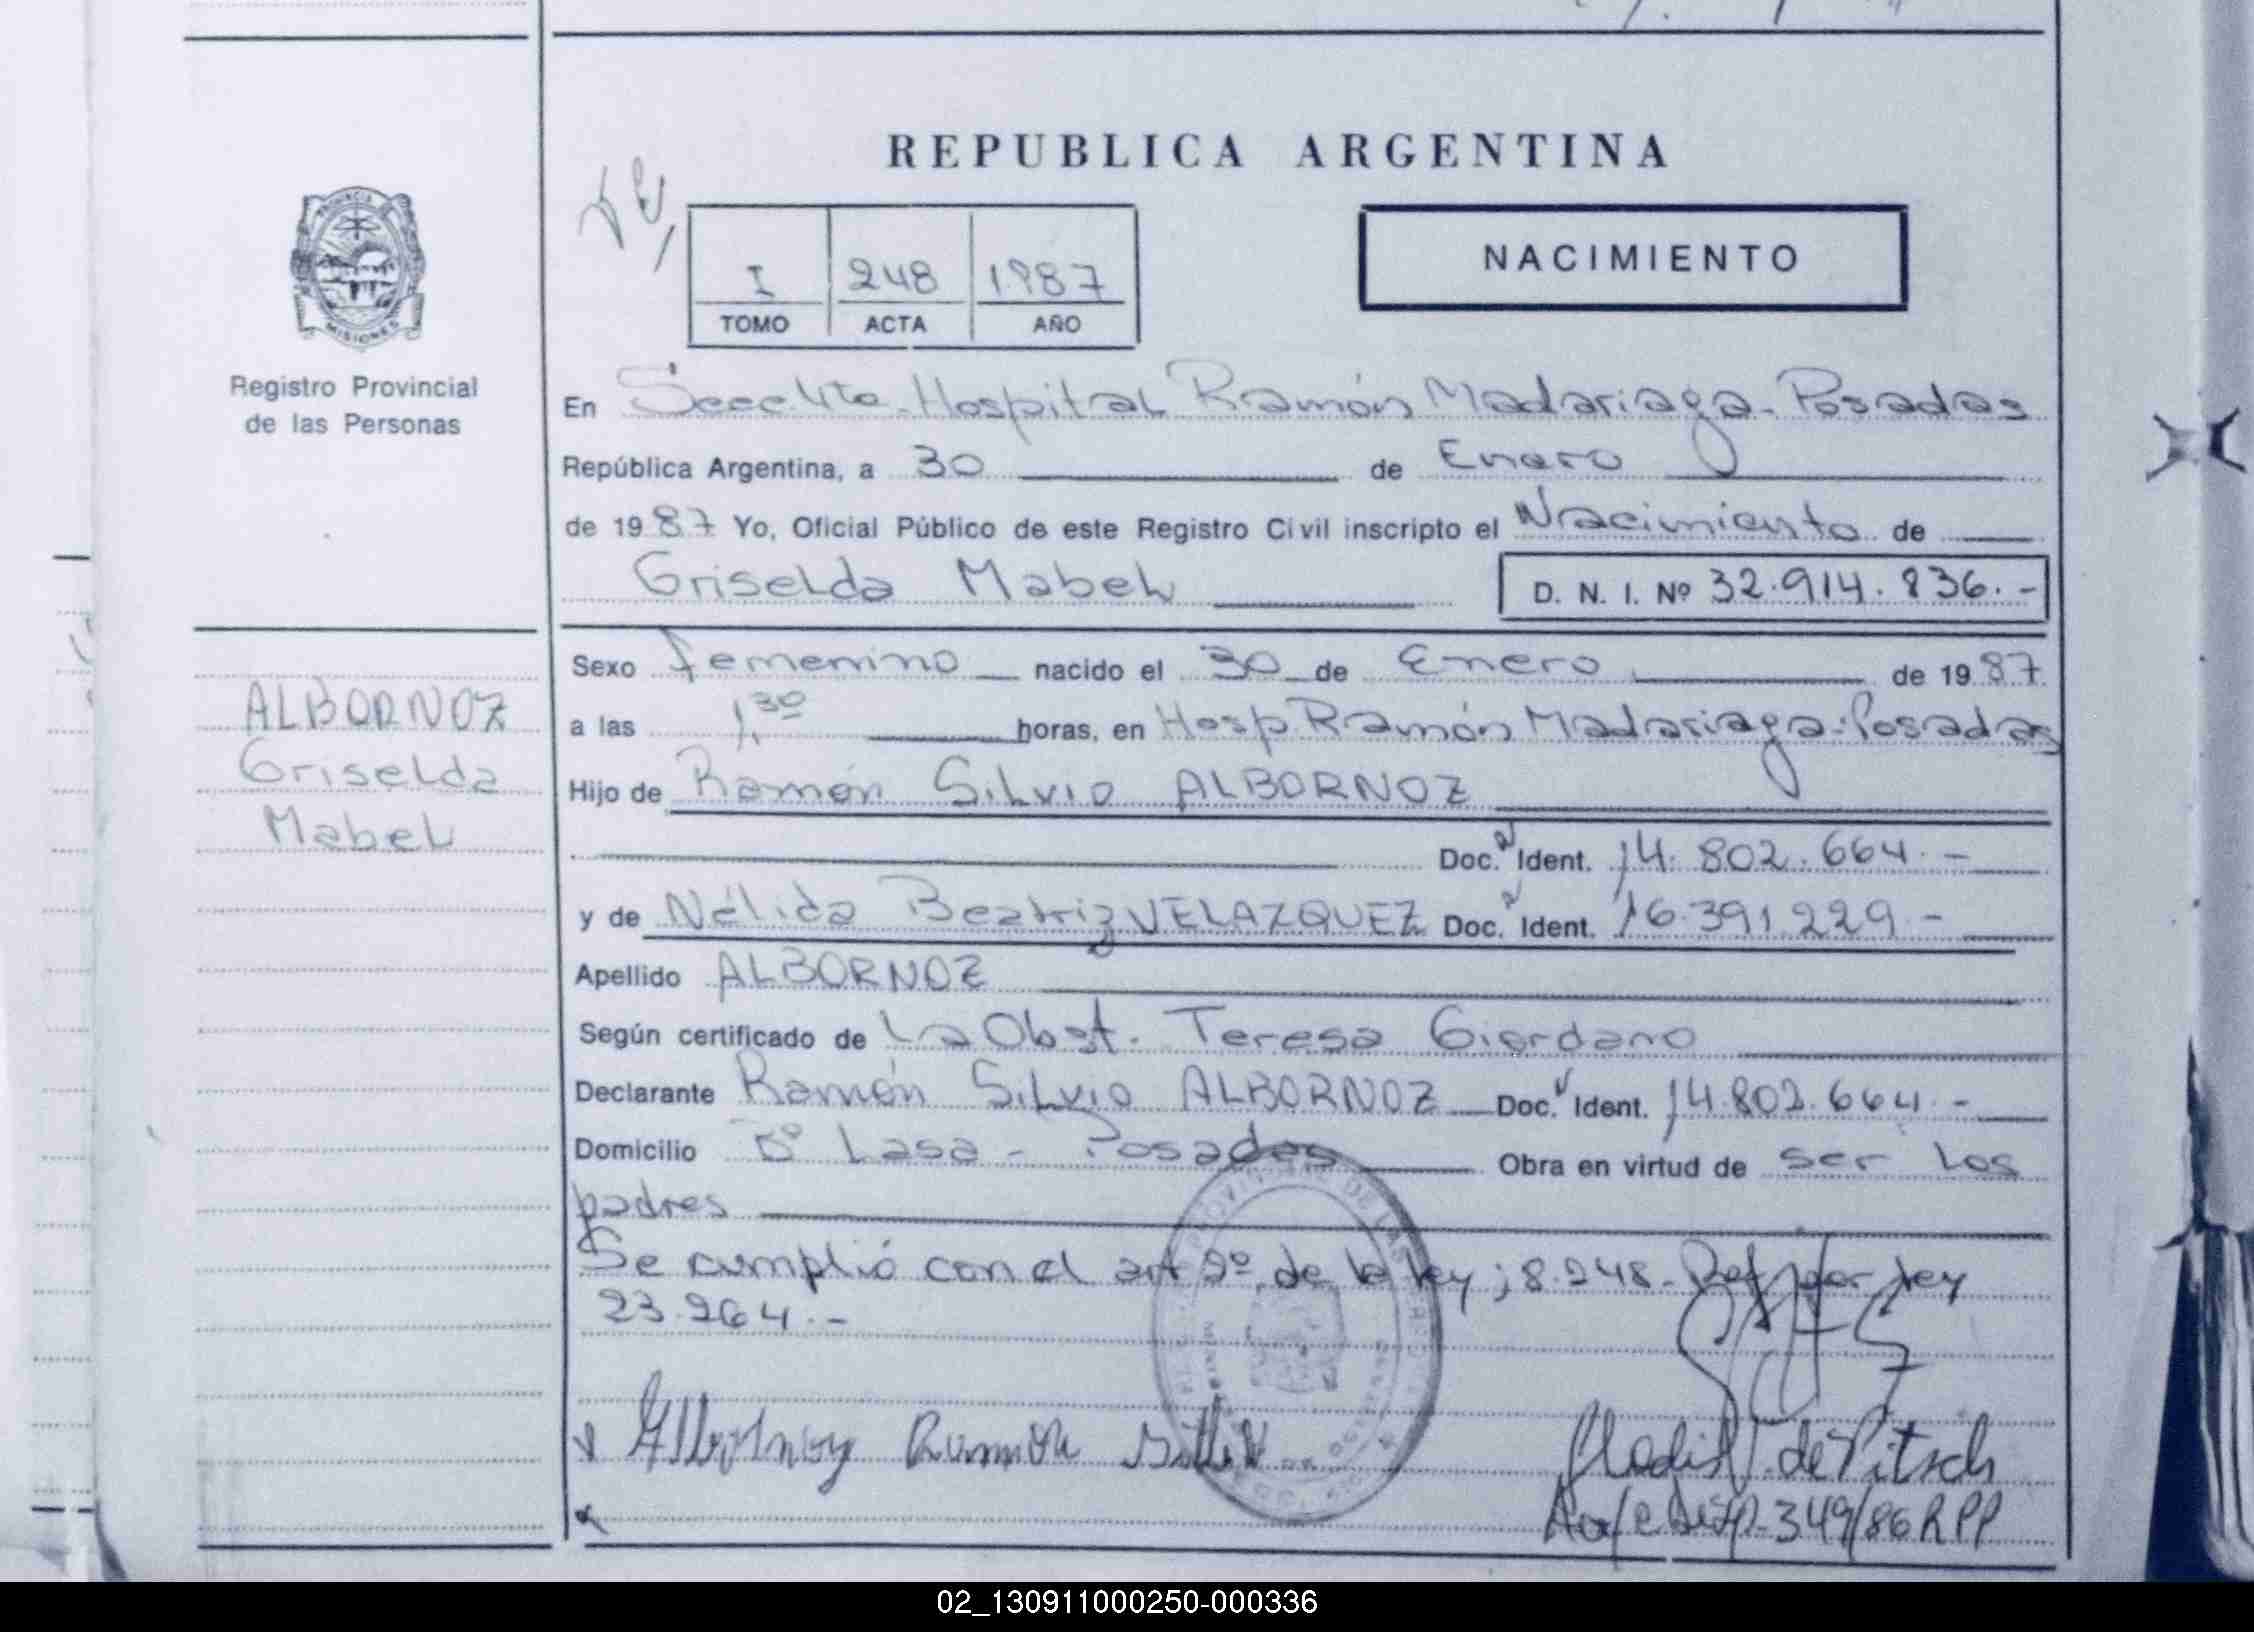 REPUBLICA ARGENTINA
I 248 1987
TOMO ACTA AÑO
NACIMIENTO
PROVINCIA
MISIONES
Registro Provincial
de las Personas
En Hospital Ramón Madariaga - Posadas
República Argentina, a 30 de Enero
de 1987 Yo, Oficial Público de este Registro Civil inscripto el Nacimiento de
Griselda Mabel D. N. I. Nº 32.914.836.-
Sexo femenino nacido el 30 de Enero de 1987
a las 1,30 horas, en Hosp. Ramón Madariaga - Posadas
Hijo de Ramón Silvio ALBORNOZ
Doc. Ident. 14.802.664.-
y de Nélida Beatriz VELAZQUEZ Doc. Ident. 16.391.229.-
Apellido ALBORNOZ
Según certificado de La Obst. Teresa Giordano
Declarante Ramón Silvio ALBORNOZ Doc. Ident. 14.802.664.-
Domicilio Bº Lasa - Posadas Obra en virtud de ser los
padres
Se cumplió con el art 2º de la ley 18.248. Ref por ley
23.264.-
ALBORNOZ
Griselda
Mabel
Albornoz Ramón
de Pitsch
349/86 RPP
02_130911000250-000336